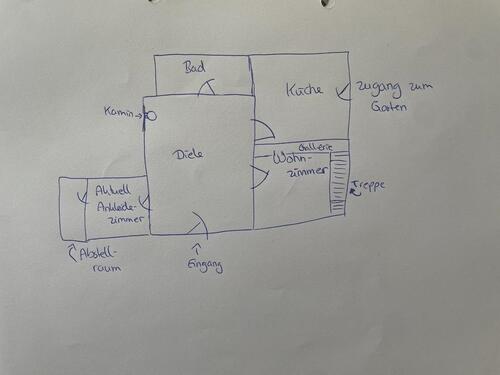 Bad
Küche
Zugang zum
Garten
Kamin
Diele
Gallerie
Wohn-
zimmer
Treppe
Aktuell
Ankleide-
zimmer
Abstell-
raum
Eingang